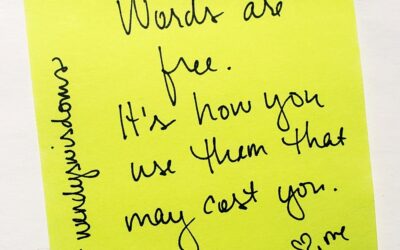 Words are
free.
It's how you
use them that
may cost you.
♡, me
wendyswisdoms